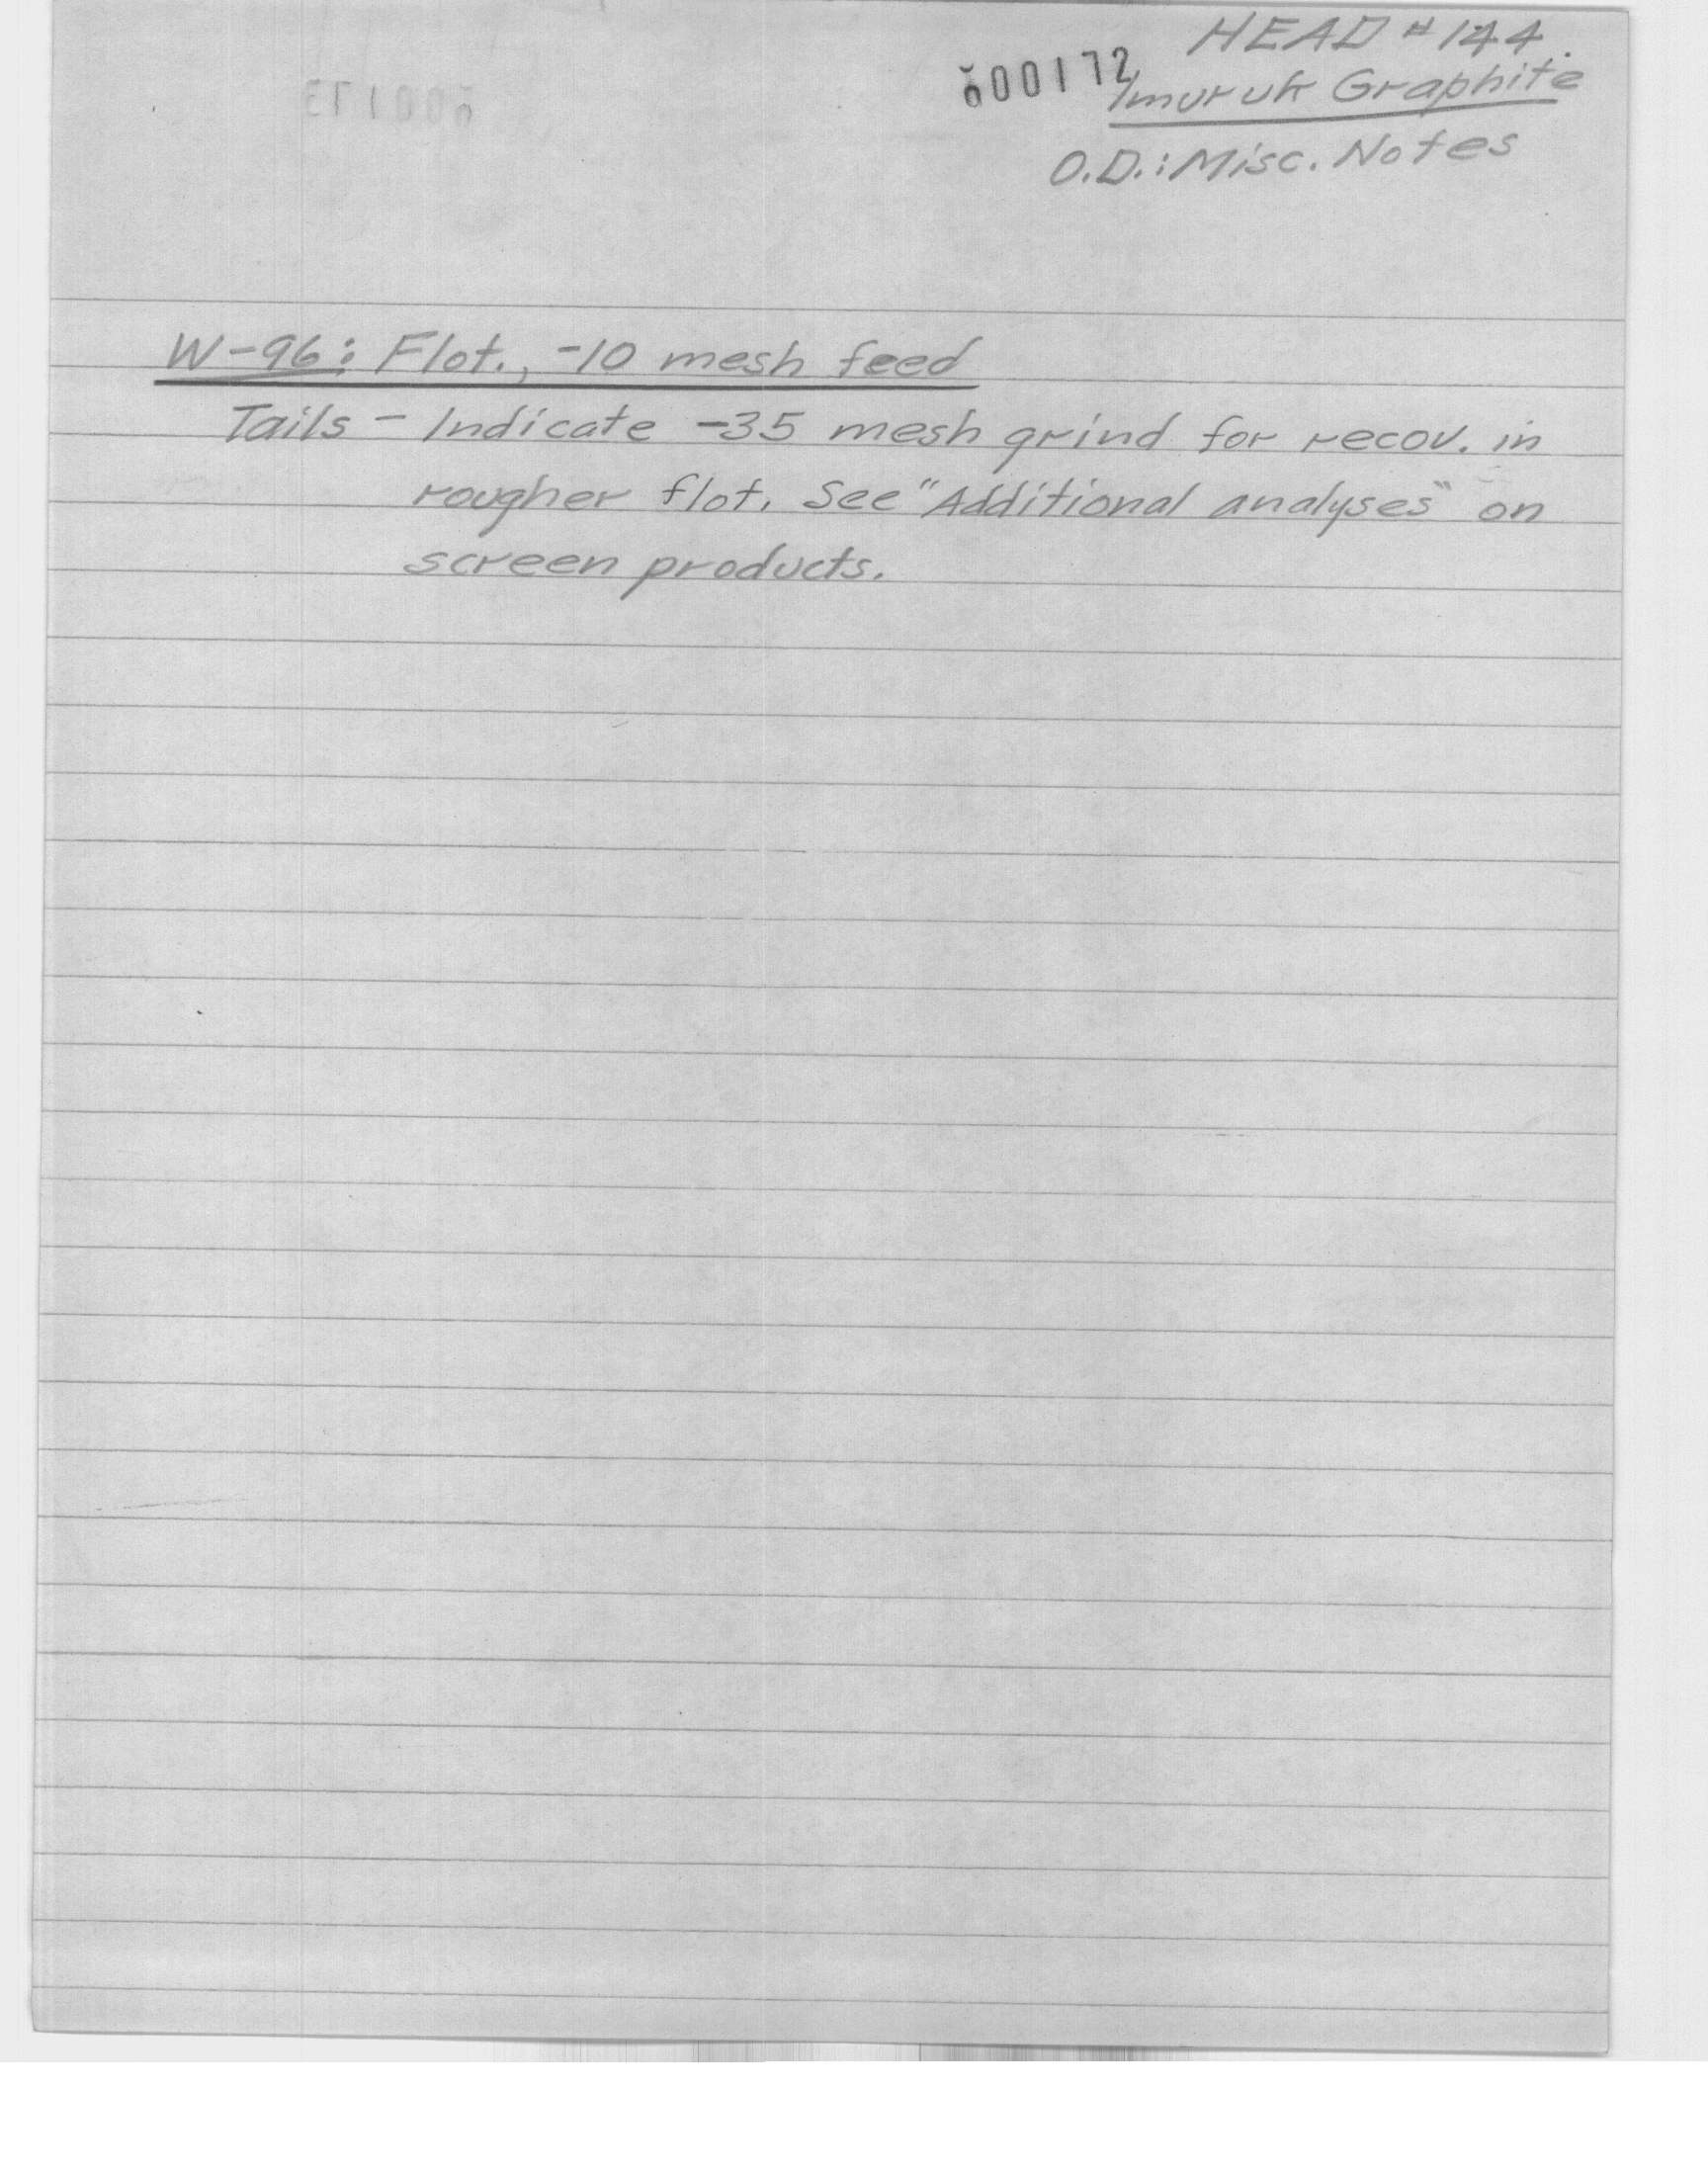 HEAD # 144
000172
Imuruk Graphite
O.D.: Misc. Notes
W-96: Flot., -10 mesh feed
Tails - Indicate -35 mesh grind for recov. in
rougher flot. See "Additional analyses" on
screen products.